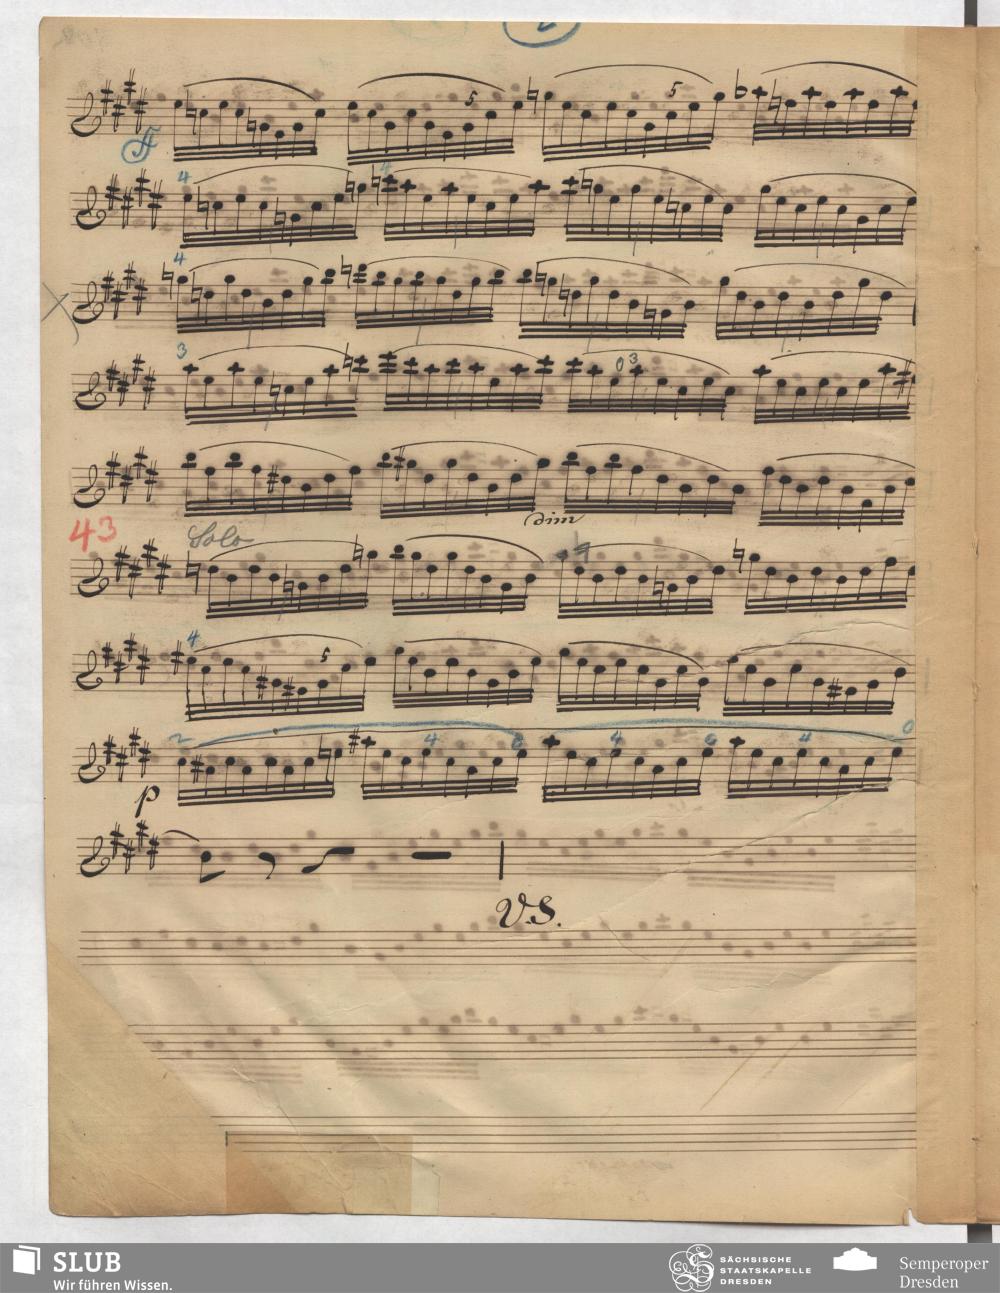 5 5
F
4 4
4
3 0 3
dim
43 Solo
4 5
2 4 0 4 0 4 0
p
V.S.
SLUB
Wir führen Wissen.
SÄCHSISCHE
STAATSKAPELLE
DRESDEN
Semperoper
Dresden